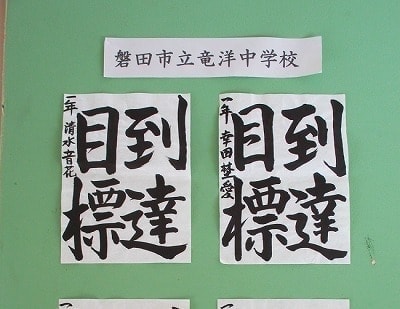 磐田市立竜洋中学校
到達
目標
一年 清水音花
到達
目標
一年 幸田埜愛